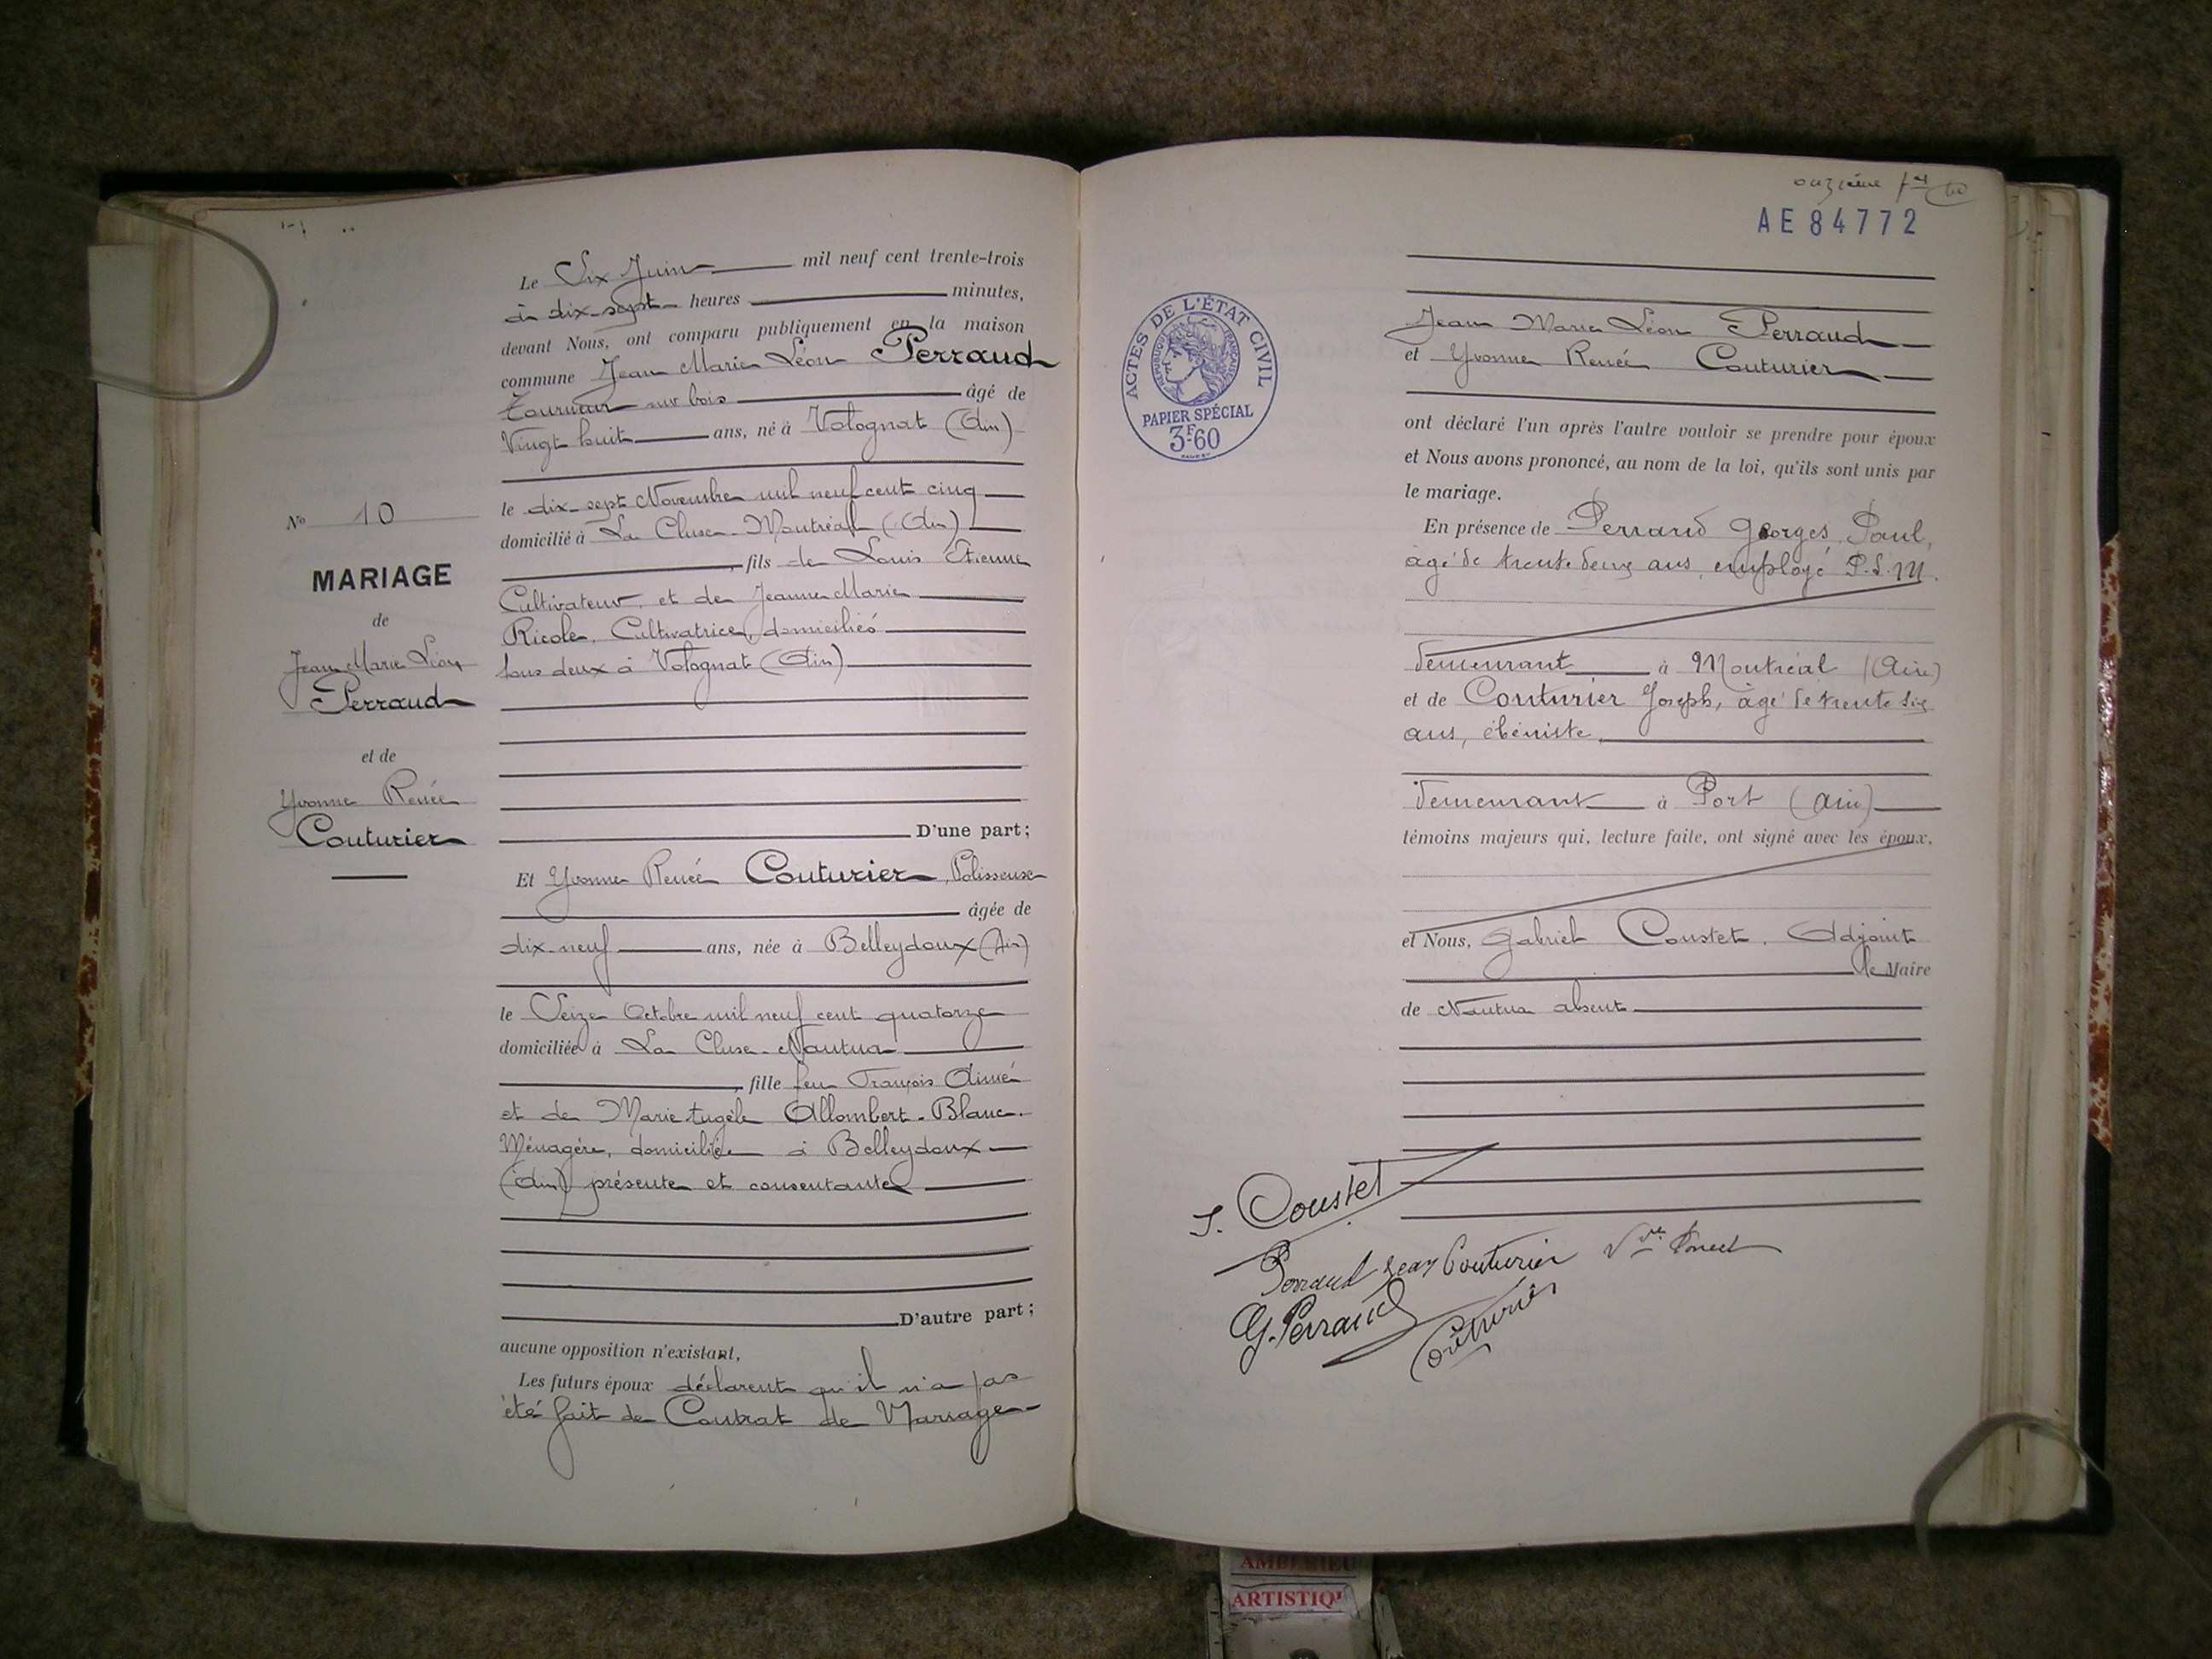 Le Six Juin mil neuf cent trente-trois
à dix-sept heures minutes,
devant Nous, ont comparu publiquement en la maison
commune Jean Marie Léon Perraud
Tourneur sur bois âgé de
Vingt huit ans, né à Volognat (Ain)
le dix-sept Novembre mil neuf cent cinq
domicilié à La Cluse-Montréal (Ain)
, fils de Louis Étienne
Cultivateur, et de Jeanne Marie
Ricole, Cultivatrice, domiciliés
tous deux à Volognat (Ain)
D'une part;
No 10
MARIAGE
de
Jean Marie Léon
Perraud
et de
Yvonne Renée
Couturier
Et Yvonne Renée Couturier, Polisseuse
âgée de
dix-neuf ans, née à Belleydoux (Ain)
le Seize Octobre mil neuf cent quatorze
domiciliée à La Cluse-Nantua
, fille feu François Aimé
et de Marie Allombert-Blanc.
Ménagère, domiciliée à Belleydoux
(Ain) présente et consentante
D'autre part;
aucune opposition n'existant,
Les futurs époux déclarent qu'il n'a pas
été fait de Contrat de Mariage
onzième
AE 84772
ACTES DE L'ÉTAT CIVIL
RÉPUBLIQUE FRANÇAISE
PAPIER SPÉCIAL
3F60
Jean Marie Léon Perraud
et Yvonne Renée Couturier
ont déclaré l'un après l'autre vouloir se prendre pour époux
et Nous avons prononcé, au nom de la loi, qu'ils sont unis par
le mariage.
En présence de Perraud Georges Paul,
âgé de trente deux ans, employé P.L.M.
demeurant à Montréal (Ain)
et de Couturier Joseph, âgé de trente six
ans, ébéniste,
demeurant à Port (Ain)
témoins majeurs qui, lecture faite, ont signé avec les époux,
et Nous, Gabriel Coustet, Adjoint
le Maire
de Nantua absent
Coustet
Perraud Jean Couturier Vve
G. Perraud
Couturier
ARTISTIQ